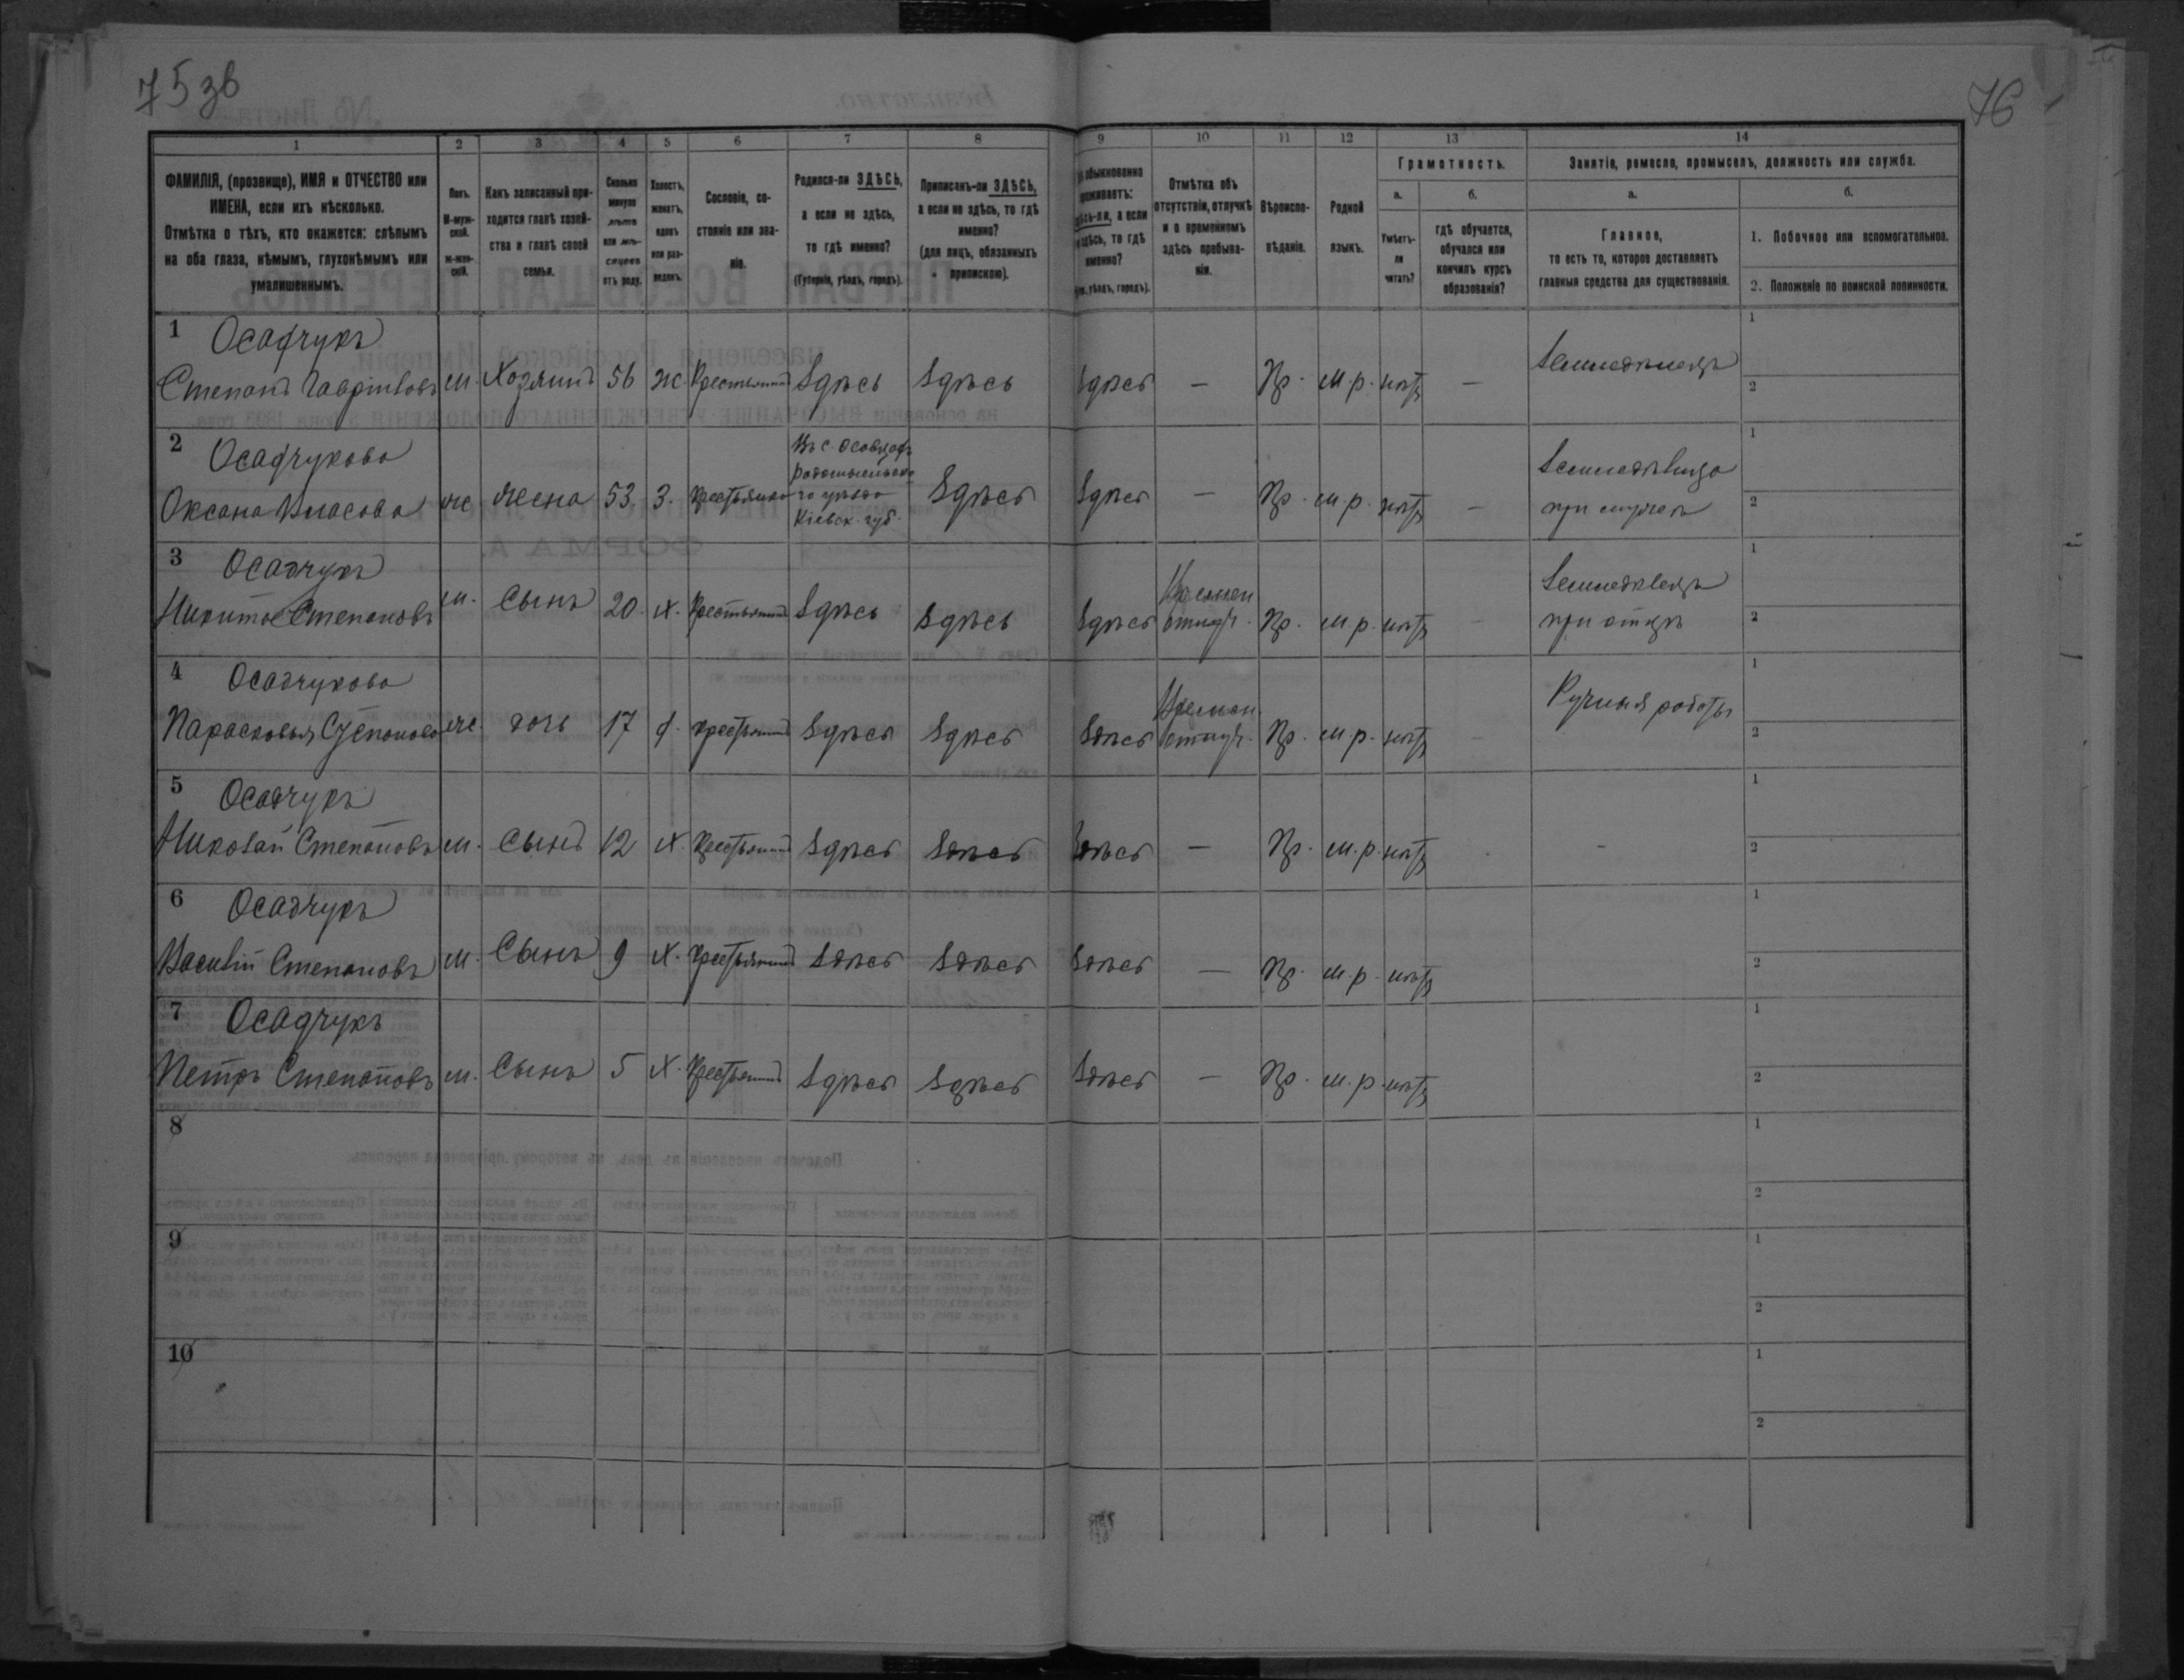 75 зв
76
1
2
3
4
5
6
7
8
9
10
11
12
13
14
ФАМИЛІЯ, (прозвище), ИМЯ и ОТЧЕСТВО или
ИМЕНА, если ихъ нѣсколько.
Отмѣтка о тѣхъ, кто окажется: слѣпымъ
на оба глаза, нѣмымъ, глухонѣмымъ или
умалишеннымъ.
Полъ.
М-муж-
ской.
ж-жен-
скій.
Какъ записанный при-
ходится главѣ хозяй-
ства и главѣ своей
семьи.
Сколько
минуло
лѣтъ
или мѣ-
сяцевъ
отъ роду.
Холостъ,
женатъ,
вдовъ
или раз-
веденъ.
Сословіе, со-
стояніе или зва-
ніе.
Родился-ли ЗДѢСЬ,
а если не здѣсь,
то гдѣ именно?
(Губернія, уѣздъ, городъ).
Приписанъ-ли ЗДѢСЬ,
а если не здѣсь, то гдѣ
именно?
(для лицъ, обязанныхъ
припискою).
обыкновенно
проживаетъ:
здѣсь-ли, а если
не здѣсь, то гдѣ
именно?
уѣздъ, городъ).
Отмѣтка объ
отсутствіи, отлучкѣ
и о временномъ
здѣсь пребыва-
ніи.
Вѣроиспо-
вѣданіе.
Родной
языкъ.
Грамотность.
а.
б.
Умѣетъ-
ли
читать?
гдѣ обучается,
обучался или
кончилъ курсъ
образованія?
Занятіе, ремесло, промыселъ, должность или служба.
а.
б.
Главное,
то есть то, которое доставляетъ
главныя средства для существованія.
1. Побочное или вспомогательное.
2. Положеніе по воинской повинности.
1 Осадчукъ
Степанъ Гавриловъ м. Хозяинъ 56 ж. Крестьянинъ Здѣсь Здѣсь Здѣсь — Пр. м.р. нѣтъ — Земледѣлецъ
1
2
2 Осадчукова
Оксана Власова ж. жена 53. З. крестьянка
Въ с. Осовцахъ
Радомысльско
го уѣзда
Кіевск. губ.
Здѣсь Здѣсь — Пр. м.р. нѣтъ —
Земледѣлица
при мужѣ
1
2
3 Осадчукъ
Никита Степановъ м. Сынъ 20. х. Крестьянинъ Здѣсь Здѣсь Здѣсь
Времен
отлуч. Пр. м.р. нѣтъ —
Земледѣлецъ
при отцѣ
1
2
4 Осадчукова
Парасковья Степанова ж. дочь 17 д. крестьянка Здѣсь Здѣсь Здѣсь
Времен.
отлуч. Пр. м.р. нѣтъ —
Ручныя работы
1
2
5 Осадчукъ
Николай Степановъ м. Сынъ 12 х. Крестьянинъ Здѣсь Здѣсь Здѣсь — Пр. м.р. нѣтъ . -
1
2
6 Осадчукъ
Василій Степановъ м. Сынъ 9 х. Крестьянинъ Здѣсь Здѣсь Здѣсь — Пр. м.р. нѣтъ
1
2
7 Осадчукъ
Петръ Степановъ м. Сынъ 5 х. Крестьянинъ Здѣсь Здѣсь Здѣсь — Пр. м.р. нѣтъ
1
2
8
1
2
9
1
2
10
1
2